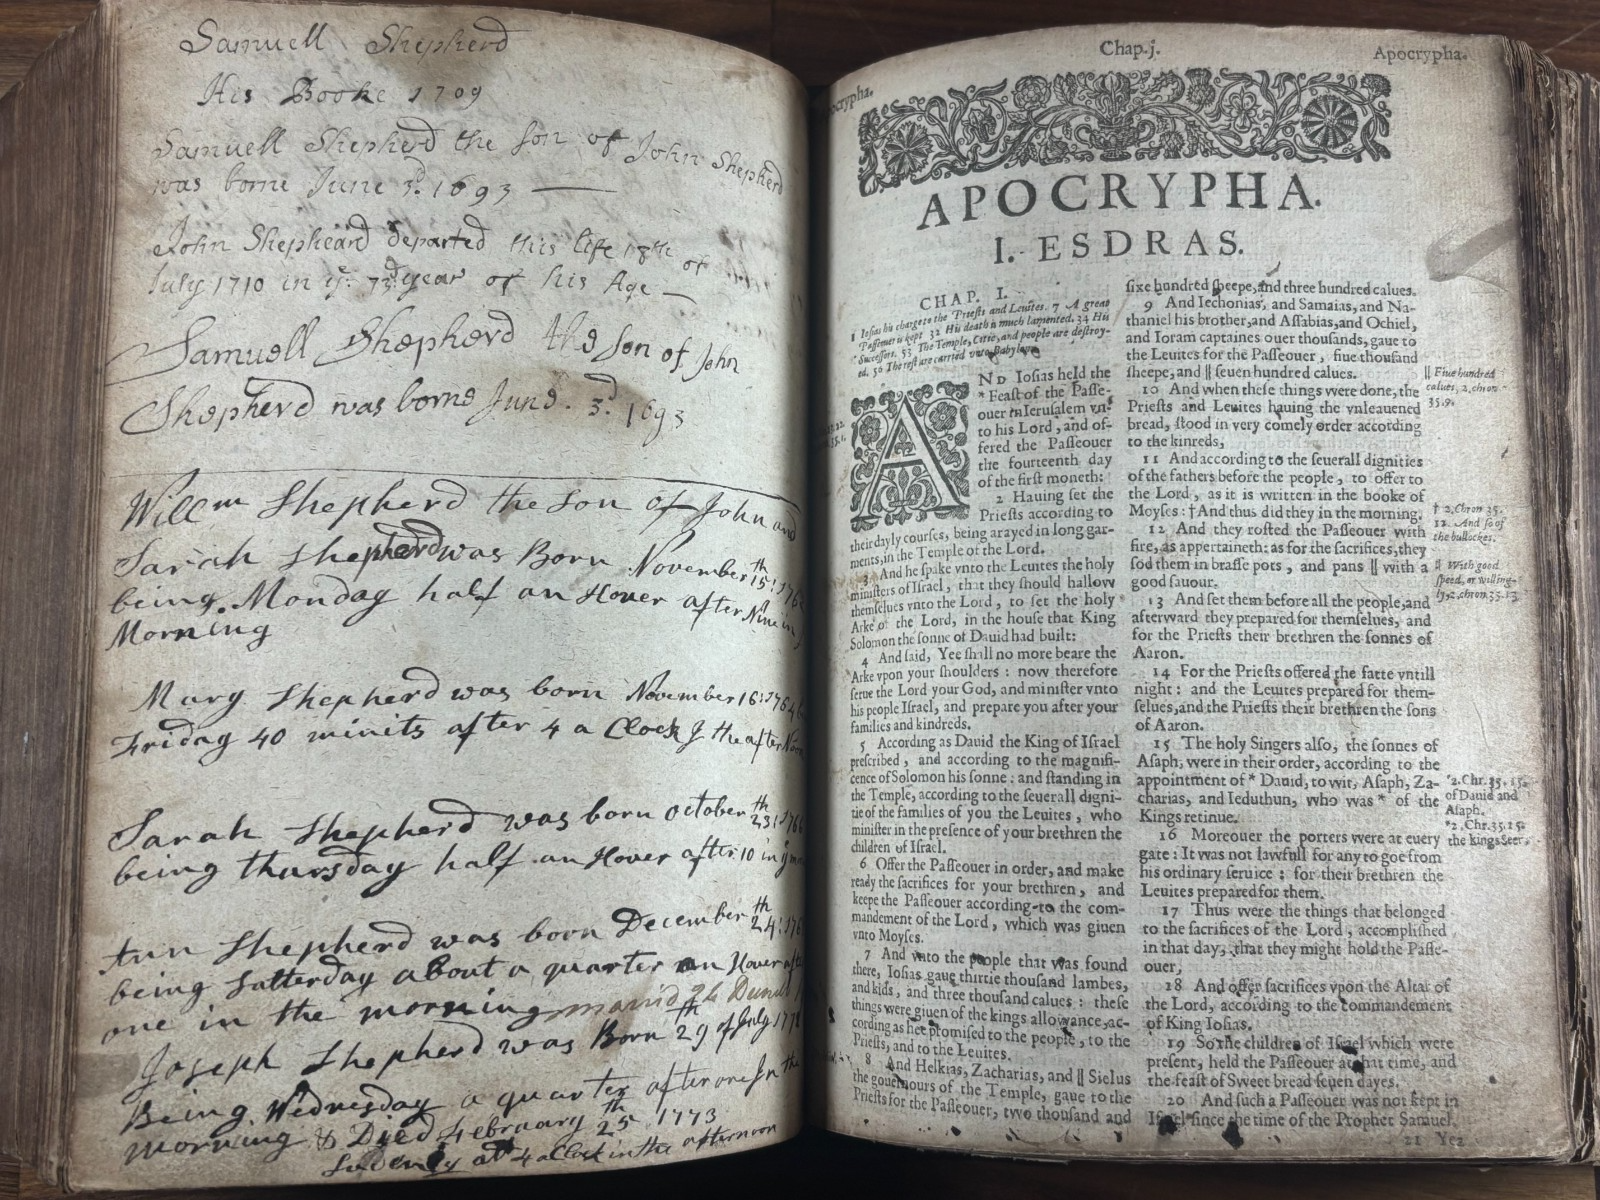 Samuell Shepherd
His Booke 1709
Samuell Shepherd the son of John Shepherd
was borne June 3d. 1693
John Shepheard departed this life 18th of
July 1710 in ye 73d year of his Age
Samuell Shepherd the son of John
Shepherd was borne June. 3d. 1693
Willm Shepherd the son of John and
Sarah Shepherd was Born November 15th
being Monday half an Hover after Nine in
Morning
Mary Shepherd was born November 16: 1764
Friday 40 minits after 4 a Clock J the after
Sarah Shepherd was born October 23th:
being thursday half an Hover after 10 in
Ann Shepherd was born December 24th:
being Satterday about a quarter an Hover
one in the morning
Joseph Shepherd was Born 29th of July
Being Wednesday a quarter after one Jn the
morning & Died February 25th 1773
Sudenly at 4 a Clock in the afternoon
Chap.j. Apocrypha.
APOCRYPHA.
I. ESDRAS.
CHAP. I.
1 Iosias his charge to the Priests and Leuites. 7 A great
Passeouer is kept 32 His death is much lamented. 34 His
Successors. 53 The Temple, Citie, and people are destroy-
ed. 56 The rest are carried vnto Babylon.
AND Iosias held the
* Feast of the Passe-
ouer in Ierusalem vn-
to his Lord, and of-
fered the Passeouer
the fourteenth day
of the first moneth:
2 Hauing set the
Priests according to
their dayly courses, being arayed in long gar-
ments, in the Temple of the Lord.
3 And he spake vnto the Leuites the holy
ministers of Israel, that they should hallow
themselues vnto the Lord, to set the holy
Arke of the Lord, in the house that King
Solomon the sonne of Dauid had built:
4 And said, Yee shall no more beare the
Arke vpon your shoulders : now therefore
serue the Lord your God, and minister vnto
his people Israel, and prepare you after your
families and kindreds,
5 According as Dauid the King of Israel
prescribed, and according to the magnifi-
cence of Solomon his sonne : and standing in
the Temple, according to the seuerall digni-
tie of the families of you the Leuites, who
minister in the presence of your brethren the
children of Israel.
6 Offer the Passeouer in order, and make
ready the sacrifices for your brethren, and
keepe the Passeouer according to the com-
mandement of the Lord, which was giuen
vnto Moyses.
7 And vnto the people that was found
there, Iosias gaue thirtie thousand lambes,
and kids, and three thousand calues : these
things were giuen of the kings allowance, ac-
cording as hee promised to the people, to the
Priests, and to the Leuites.
8 And Helkias, Zacharias, and || Sielus
the gouernours of the Temple, gaue to the
Priests for the Passeouer, two thousand and
sixe hundred sheepe, and three hundred calues.
9 And Iechonias, and Samaias, and Na-
thaniel his brother, and Assabias, and Ochiel,
and Ioram captaines ouer thousands, gaue to
the Leuites for the Passeouer, fiue thousand
sheepe, and || seuen hundred calues.
10 And when these things were done, the
Priests and Leuites hauing the vnleauened
bread, stood in very comely order according
to the kinreds,
11 And according to the seuerall dignities
of the fathers before the people, to offer to
the Lord, as it is written in the booke of
Moyses : † And thus did they in the morning.
12 And they rosted the Passeouer with
fire, as appertaineth: as for the sacrifices, they
sod them in brasse pots, and pans || with a
good sauour.
13 And set them before all the people, and
afterward they prepared for themselues, and
for the Priests their brethren the sonnes of
Aaron.
14 For the Priests offered the fatte vntill
night : and the Leuites prepared for them-
selues, and the Priests their brethren the sons
of Aaron.
15 The holy Singers also, the sonnes of
Asaph, were in their order, according to the
appointment of * Dauid, to wit, Asaph, Za-
charias, and Ieduthun, who was * of the
Kings retinue.
16 Moreouer the porters were at euery
gate : It was not lawfull for any to goe from
his ordinary seruice : for their brethren the
Leuites prepared for them.
17 Thus were the things that belonged
to the sacrifices of the Lord, accomplished
in that day, that they might hold the Passe-
ouer,
18 And offer sacrifices vpon the Altar of
the Lord, according to the commandement
of King Iosias.
19 So the children of Israel which were
present, held the Passeouer at that time, and
the feast of Sweet bread seuen dayes.
20 And such a Passeouer was not kept in
Israel since the time of the Prophet Samuel.
21 Yea
|| Fiue hundred
calues, 2.chron
35.9.
† 2.Chron 35.
12. And so of
the bullockes.
|| With good
speed, or willing-
ly, 2.chron.35.13
*2.Chr.35.15.
of Dauid and
Asaph.
*2.Chr.35.15.
the kings Seer.